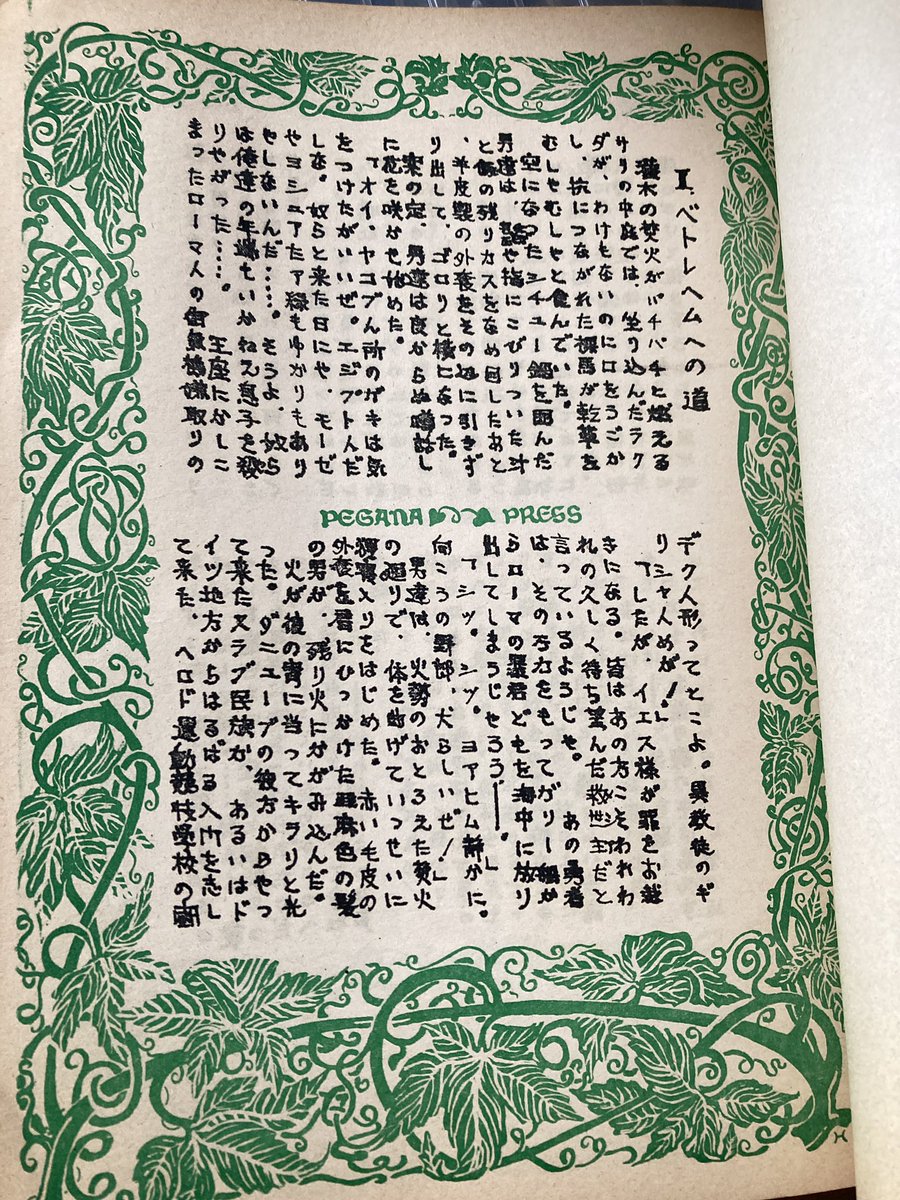 Ⅱ.ベトレヘムへの道
灌木の焚火がパチパチと燃える
サリの中庭では、坐り込んだラク
ダが、わけもないのに口をうごか
し、杭につながれた裸馬が乾草を
むしゃむしゃと食んでいた。
空になったシチュー鍋を囲んだ
男達は、髭や指にこびりついた汁
と飯の残りカスをなめ回したあと
、羊皮製の外套をその辺に引きず
り出して、ゴロリと横になった。
案の定、男達は良からぬ噂話し
に花を咲かせ始めた。
「オイ、ヤコブん所のガキは気
をつけたがいいぜ。エジプト人だ
しな。奴らと来た日にゃ、モーゼ
やヨシュアたァ縁もゆかりもあり
ゃしないんだ……。そうよ、奴ら
は俺達の年端もいかねえ息子を殺
りゃがった……。王座にかしこ
まったローマ人の御機嫌取りの
PEGANA PRESS
デク人形ってとこよ。異教徒のギ
リシャ人めが！」
「したが、イエス様が罪をお裁
きになる。皆はあの方こそわれわ
れの久しく待ち望んだ救世主だと
言っているようじゃ。あの勇者
は、その力をもってガリー船か
らローマの暴君どもを海中に放り
出してしまうじゃろう――。」
「シッ、シッ。ヨアヒム静かに。
向こうの野郎、犬らしいぜ！」
男達は、火勢のおとろえた焚火
の廻りで、体を曲げていっせいに
狸寝入りをはじめた。赤い毛皮の
外套を肩にひっかけた亜麻色の髪
の男が、残り火にかがみ込んだ。
火が彼の背に当ってキラリと光
った。ダニューブの彼方からやっ
て来たスラブ民族か、あるいはド
イツ地方からはるばる入門を志し
て来た、ヘロド運動競技学校の闘